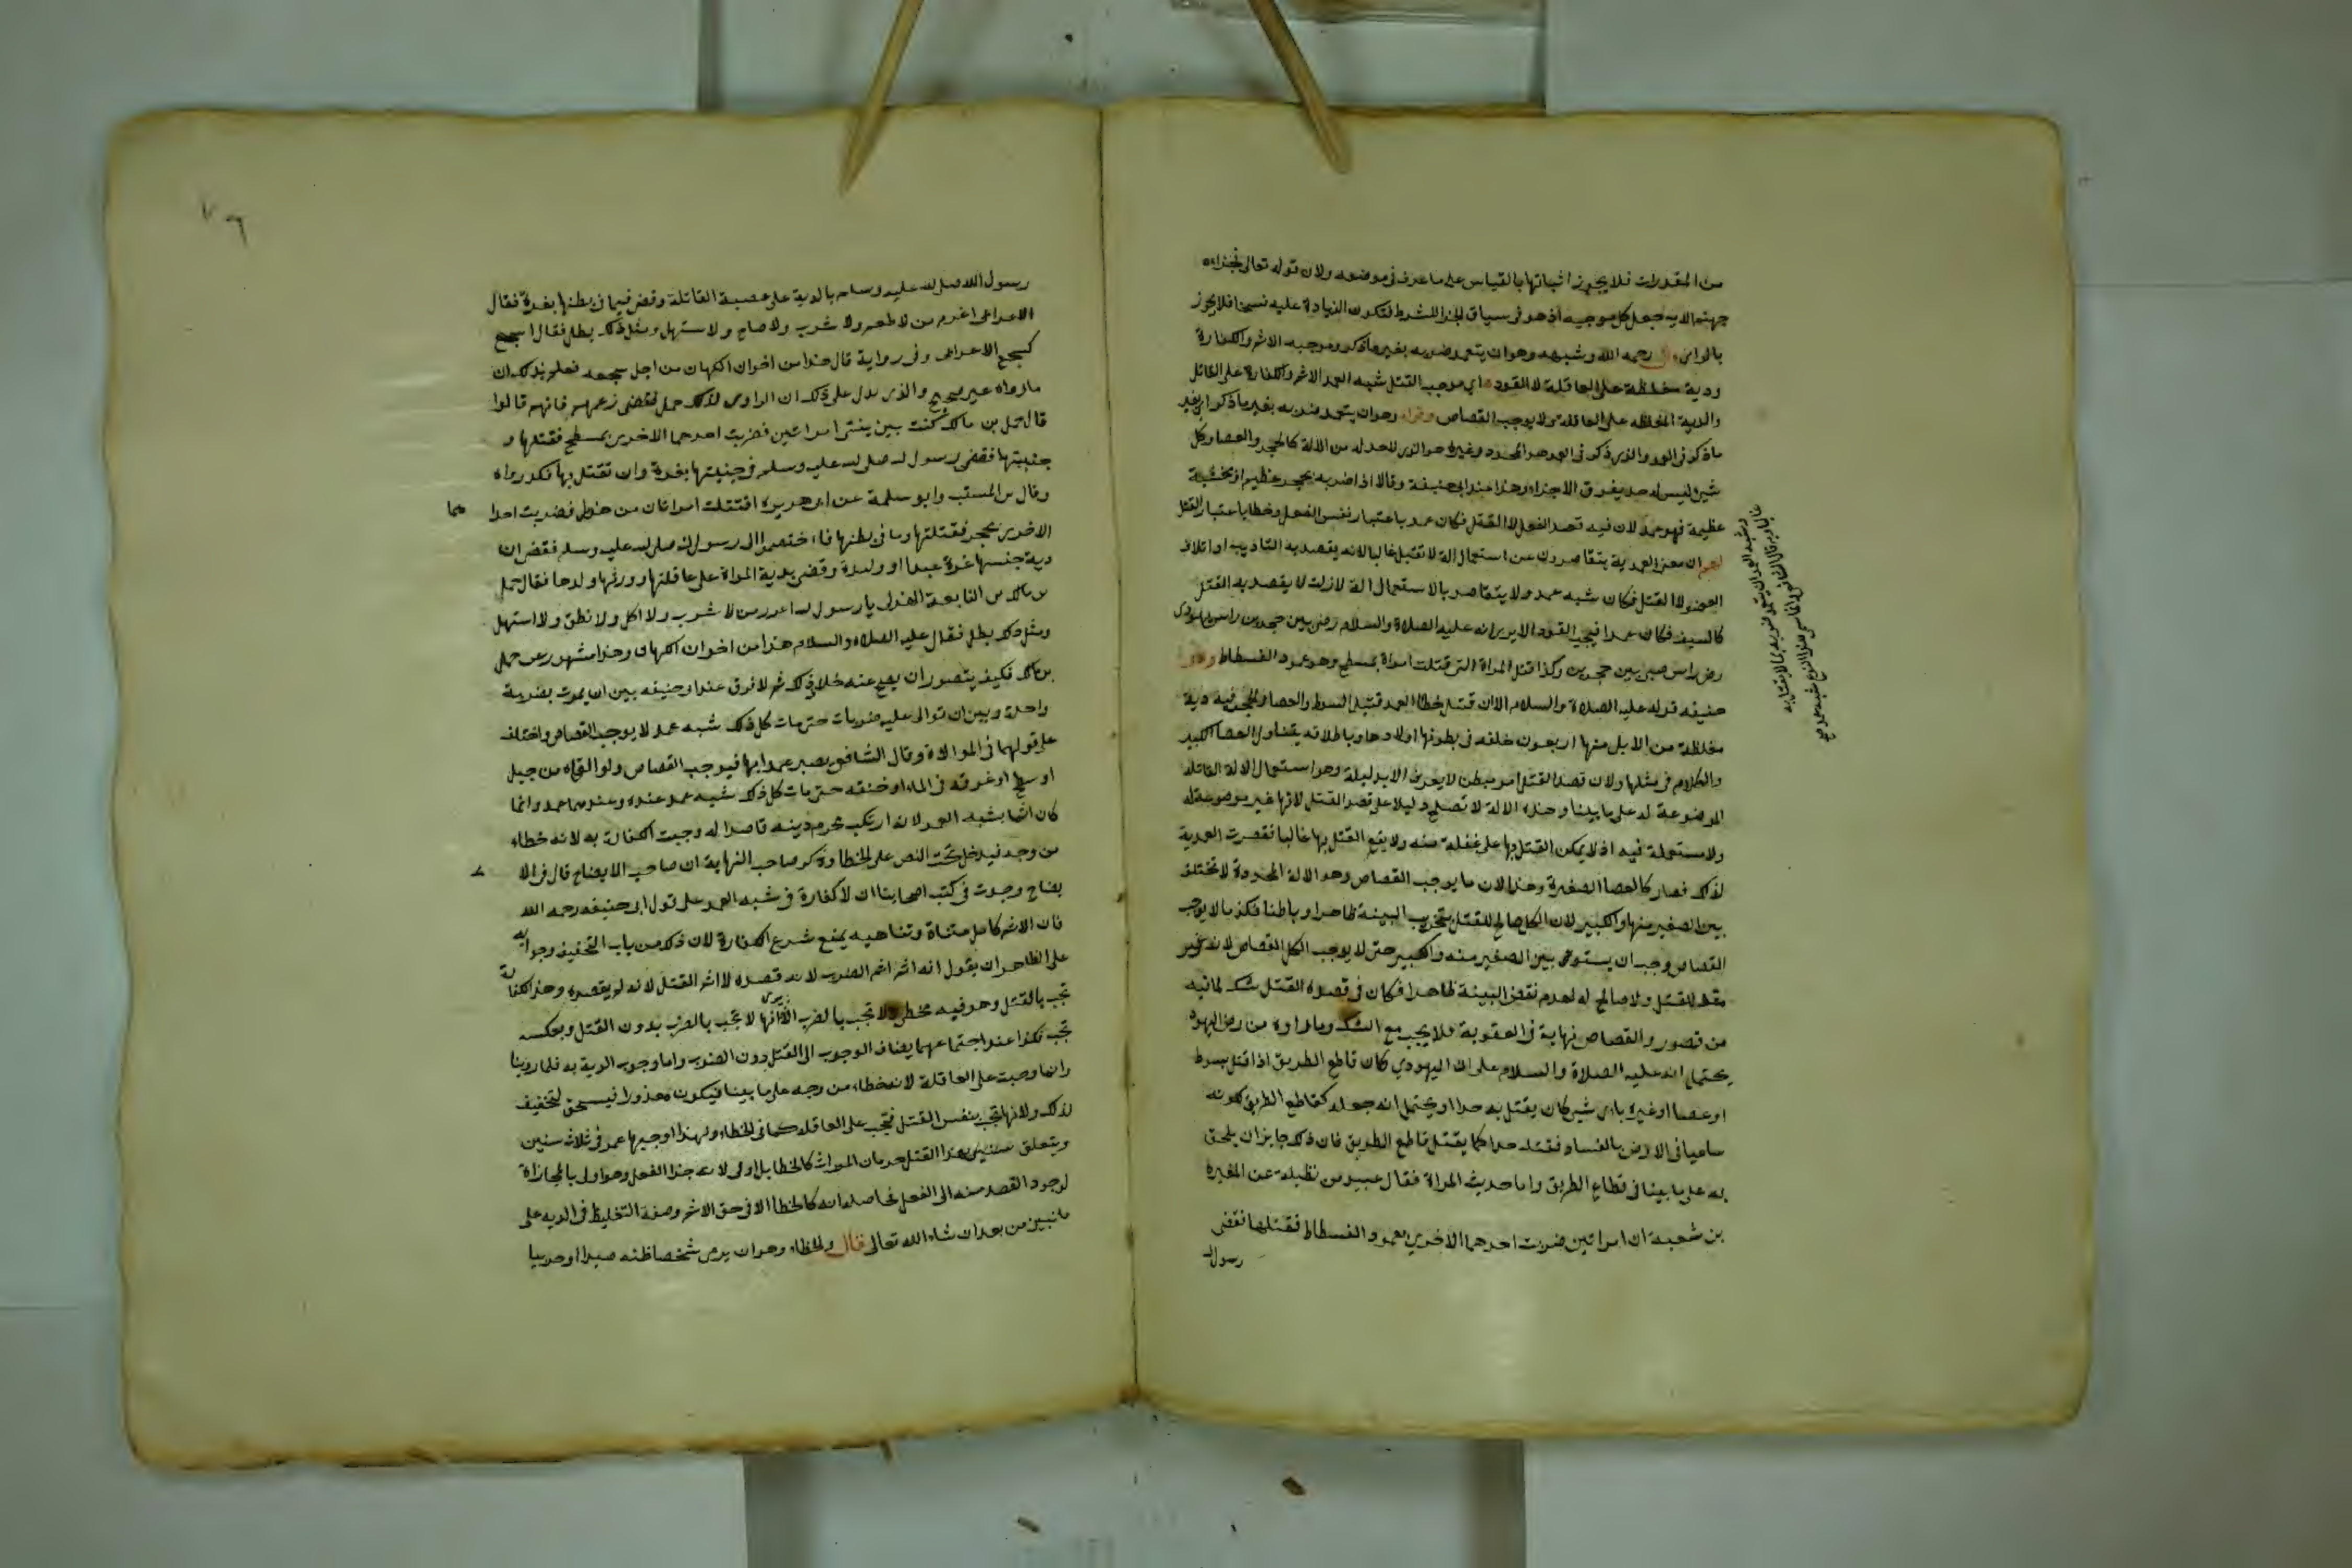 من المقدرات فلا يجوز اثباتها بالقياس على ما عرف في موضعه ولان قوله تعالى فجزاءه
جهنم الاية جعل كل موجبه اذ هو في سياق الجزا للشرط فتكون الزيادة عليه نسخا فلا يجوز
بالراى قال رحمه الله وشبهه وهو ان يتعمد ضربه بغير ما ذكر وموجبه الاثم والكفارة
ودية مغلظة على العاقلة لا القود اي موجب القتل شبه العمد الاثم والكفارة على القاتل
والدية المغلظة على العاقلة ولا يوجب القصاص وقوله وهو ان يتعمد ضربه بغير ما ذكر اي بغير
ما ذكر في العمد والذي ذكر في العمد هو المحدد وغيره هو الذي لا حد له من الالة كالحجر والعصا وكل
شئ ليس له حد يفرق الاجزاء وهذا عند ابي حنيفة وقالا اذا ضربه بحجر عظيم او بخشبة
عظيمة فهو عمد لان فيه قصد الفعل لا القتل فكان عمدا باعتبار نفس الفعل وخطا باعتبار القتل
لهم ان معنى العمدية يتقاصر دون عن استعمال الة لا تقتل غالبا لانه يقصد به التاديب او اتلاف
العضو لا القتل فكان شبه عمد ولا يتقاصر بالاستعمال الة لا تلبث لا يقصد به القتل
كالسيف فكان عمدا فيجب القود الا يرى انه عليه الصلاة والسلام رض بين حجرين راس يهودي
رض راس صبي بين حجرين وكذا قتل المراة التي قتلت امراة بمسطح وهو عمود الفسطاط ولابي
حنيفه قوله عليه الصلاة والسلام الا ان قتيل خطا العمد قتيل السوط والعصا والحجر فيه دية
مغلظة من الابل منها اربعون خلفه في بطونها اولادها وباطلاقه يتناول العصا الكبير
والكلام في مثلها ولان قصد القتل امر مبطن لا يعرف الا بدليله وهو استعمال الالة القاتلة
الموضوعة له على ما بينا وهذه الالة لا تصلح دليلا على قصد القتل لانها غير موضوعة له
ولا مستعملة فيه اذ لا يمكن القتل بها على غفلة منه ولا يقع القتل بها غالبا فقصرت العمدية
لذلك فصار كالعصا الصغيرة وهذا لان ما يوجب القصاص وهو الالة المحدودة لا تختلف
بين الصغير منها والكبير لان الكل صالح للقتل بتخريب البينة ظاهرا وباطنا فكذا ما لا يوجب
القصاص وجب ان يستوي بين الصغير منه والكبير حتى لا يوجب الكل القصاص لانه غير
معد للقتل ولا صالح له لعدم نقض البينة ظاهرا فكان في قصده القتل شك لما فيه
من قصور والقصاص نهاية في العقوبة فلا يجب مع الشك وما رواه من رض اليهود
يحتمل انه عليه الصلاة والسلام علم ان اليهودي كان قاطع الطريق اذا قتل بسوط
او عصا او غيره باى شئ كان يقتل به حدا او يحتمل انه جعله كقاطع الطريق لكونه
ساعيا في الارض بالفساد فقتله حدا كما يقتل قاطع الطريق فان ذلك جايز ان يلحق
به على ما بينا في قطاع الطريق واما حديث المراة فقال عبيد بن نضيلة عن المغيرة
بن شعبة ان امراتين ضربت احدهما الاخرى بعمود الفسطاط فقتلتها فقضى
رسول
رسول الله صلى الله عليه وسلم بالدية على عصبة القاتلة وقضى فيما في بطنها بغرة فقال
الاعرابي اغرم من لا طعم ولا شرب ولا صاح ولا استهل ومثل ذلك بطل فقال اسجع
كسجع الاعراب وفي رواية قال هذا من اخوان الكهان من اجل سجعه فعلم بذلك ان
ما رواه غير صحيح والذي يدل على ذلك ان الراوي لذلك حمل فقضى زعمهم فانهم قالوا
قال حمل بن مالك كنت بين بيتى امراتين فضربت احدهما الاخرى بمسطح فقتلتها و
جنينها فقضى رسول الله صلى الله عليه وسلم في جنينها بغرة وان تقتل بها فكذا رواه
وقال بن المسيب وابو سلمة عن ابي هريرة اقتتلت امراتان من هذيل فضربت احدا
هما
الاخرى بحجر فقتلتها وما في بطنها فاختصموا الى رسول الله صلى الله عليه وسلم فقضى ان
دية جنينها غرة عبد او وليدة وقضى بدية المراة على عاقلتها وورثها ولدها فقال حمل
بن مالك بن النابغة الهذلي يا رسول الله اغرم من لا شرب ولا اكل ولا نطق ولا استهل
ومثل ذلك بطل فقال عليه الصلاة والسلام هذا من اخوان الكهان وهذا مشهور عن حمل
بن مالك فكيف يتصور ان يصح عنه خلاف ذلك ثم لا فرق عند ابو حنيفه بين ان يموت بضربة
واحدة وبين ان توالى عليه ضربات حتى مات كل ذلك شبه عمد لا يوجب القصاص واختلف
على قولهما في الموالاة وقال الشافعي يصير عمدا بها فيوجب القصاص ولو القاه من جبل
او سطح او غرقه في الماء او خنقه حتى مات كل ذلك شبه عمد عنده وعندهما عمد وانما
كان اثما بشبه العمد لانه ارتكب محرم دينه قاصدا له وجبت الكفارة به لانه خطاء
من وجه فيدخل تحت النص على الخطا وذكر صاحب النهاية ان صاحب الايضاح قال في الا
يضاح وجدت في كتب اصحابنا ان لا كفارة في شبه العمد على قول ابي حنيفه رحمه الله
فان الاثم كامل متناه وتناهيه يمنع شرع الكفارة لان ذلك من باب التخفيف وجوابه
على الظاهر ان يقول انه اثم اثم الضرب لانه قصده لا اثم القتل لانه لم يقصده وهذه الكفارة
تجب بالقتل وهو فيه مخطئ ولا تجب بالضرب الا ترى انها لا تجب بالضرب بدون القتل وبعكسه
تجب فكذا عند اجتماعهما يضاف الوجوب الى القتل دون الضرب واما وجوب الدية به فلما روينا
وانما وجبت على العاقلة لانه خطاء من وجه على ما بينا فيكون معذورا فيستحق لتخفيف
لذلك ولانها تجب بنفس القتل فتجب على العاقلة كما في الخطاء ولهذا اوجبها عمر في ثلاث سنين
ويتعلق بهذا القتل حرمان الميراث كالخطا بل اولى لانه جزا الفعل وهو اولى بالمجازاة
لوجود القصد منه الى الفعل فحاصله انه كالخطا الا في حق الاثم وصفة التغليظ في الدية على
ما نبين من بعد ان شاء الله تعالى قال والخطاء وهو ان يرمى شخصا ظنه صيدا او حربيا